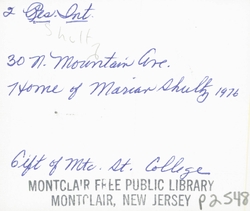 2 Res. Int.
Shultz
30 N. Mountain Ave.
Home of Marian Shultz 1976
Gift of Mtc. St. College
MONTCLAIR FREE PUBLIC LIBRARY
MONTCLAIR, NEW JERSEY p2548